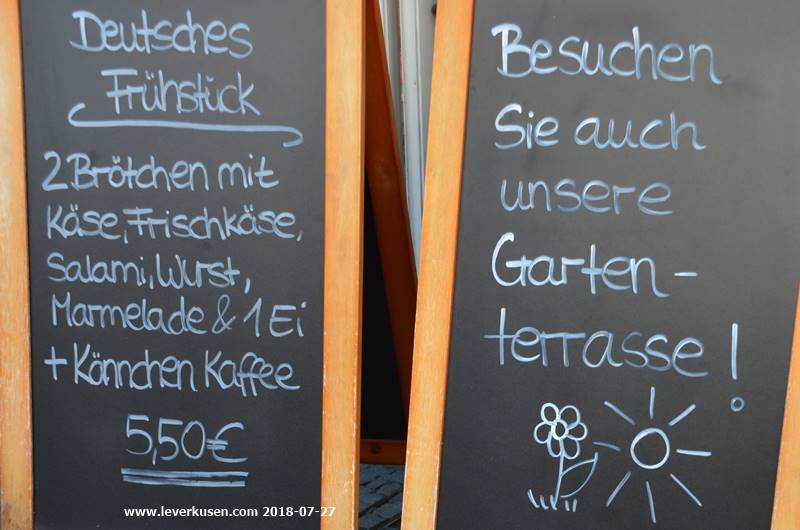 Deutsches
Frühstück
2 Brötchen mit
Käse, Frischkäse,
Salami, Wurst,
Marmelade & 1 Ei
+ Kännchen Kaffee
5,50€
Besuchen
Sie auch
unsere
Garten-
terrasse!
www.leverkusen.com 2018-07-27